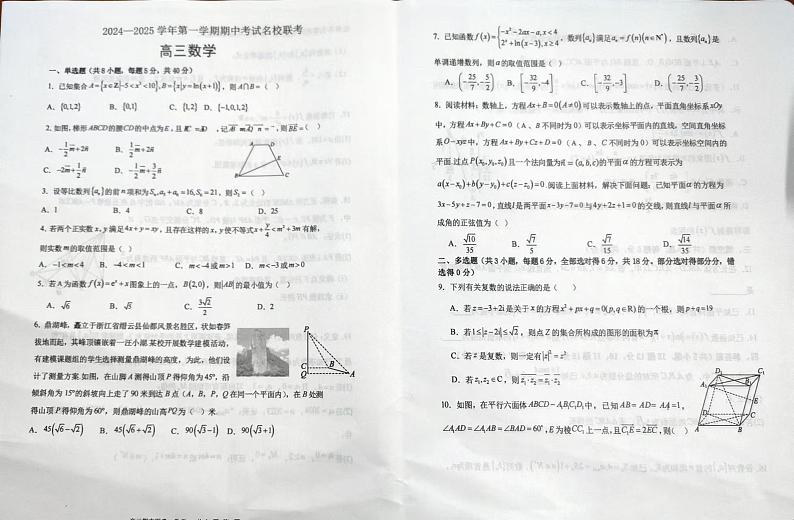 2024—2025学年第一学期期中考试名校联考
高三数学
一、单选题（共8小题，每题5分，共40分）
1. 已知集合A={x∈Z|-5<x³<10},B={x|y=ln(x+1)}，则A∩B=（ ）
A. {0,1,2} B. {0,1} C. {1,2} D. {-1,0,1,2}
2. 如图，梯形ABCD的腰CD的中点为E，且
，则BE=（ ）
A. -1/2m+2n B. 1/2m+2n
C. -2m+1/2n D. -1/2m+3/2n
3. 设等比数列{aₙ}的前n项和为Sₙ, S₆=21，则S₃=（ ）
A. 1 B. 4 C. 8 D. 25
4. 若两个正实数x,y满足4x+y=xy，且存在这样的x,y使不等式x+y/4<m²+3m有解，
则实数m的取值范围是（ ）
A. -1<m<4 B. -4<m<1 C. m<-4或m>1 D. m<-3或m>0
5. 若A为函数f(x)=eˣ+x图象上的一点，B(2,0)，则|AB|的最小值为（ ）
A. √6 B. √5 C. 3√2/2 D. 2
6. 鼎湖峰，矗立于浙江省缙云县仙都风景名胜区，状如春笋
拔地而起，其峰顶镶嵌着一汪小湖.某校开展数学建模活动，
有建模课题组的学生选择测量鼎湖峰的高度，为此，他们设
计了测量方案.如图，在山脚A测得山顶P得仰角为45°，沿
倾斜角为15°的斜坡向上走了90米到达B点（A，B，P，Q在同一个平面内），在B处测
得山顶P得仰角为60°，则鼎湖峰的山高PQ为（ ）米.
A. 45(√6-√2) B. 45(√6+√2) C. 90(√3-1) D. 90(√3+1)
P
C
Q
B
A
7. 已知函数f(x)={-x²-2ax-a,x<4
2ˣ+ln(x-3),x≥4，数列{aₙ}满足aₙ=f(n)(n∈N*)，且数列{aₙ}是
单调递增数列，则a的取值范围是（ ）
A. (-25/7,-5/2) B. [-32/9,-4] C. [-32/9,-3] D. (-25/7,-3/2)
8. 阅读材料：数轴上，方程Ax+B=0(A≠0)可以表示数轴上的点，平面直角坐标系xOy
中，方程Ax+By+C=0（A、B不同时为0）可以表示坐标平面内的直线，空间直角坐标
系O-xyz中，方程Ax+By+Cz+D=0（A、B、C不同时为0）可以表示坐标空间内的
平面.过点P(x₀,y₀,z₀)且一个法向量为n=(a,b,c)的平面α的方程可表示为
a(x-x₀)+b(y-y₀)+c(z-z₀)=0.阅读上面材料，解决下面问题：已知平面α的方程为
3x-5y+z-7=0，直线l是两平面x-3y-7=0与4y+2z+1=0的交线，则直线l与平面α所
成角的正弦值为（ ）
A. √10/35 B. √7/5 C. √7/15 D. √14/35
二、多选题（共3小题，每题6分，全部选对得6分，共18分，部分选对得部分分，错
选得0分）
9. 下列有关复数的说法正确的是（ ）
A. 若z=-3+2i是关于x的方程x²+px+q=0(p,q∈R)的一个根，则p+q=19
B. 若1≤|z-2i|≤√2，则点Z的集合所构成的图形的面积为π
C. 若z是复数，则一定有|z|²=z²
D. 若z₁,z₂∈C，则
10. 如图，在平行六面体ABCD-A₁B₁C₁D₁中，已知AB=AD=AA₁=1，
∠A₁AD=∠A₁AB=∠BAD=60°，E为棱CC₁上一点，且C₁E=2EC，则（ ）
D₁
C₁
A₁
B₁
E
D
C
A
B